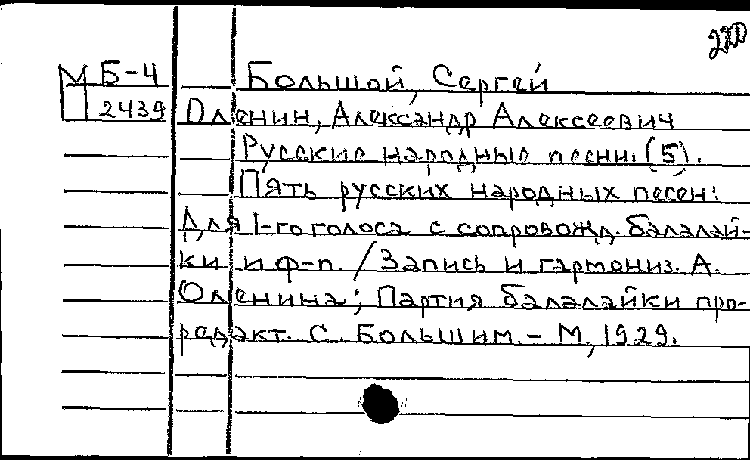 220
М Б-4 Большой, Сергей
2439 Оленин, Александр Алексеевич
Русские народные песни. (5).
Пять русских народных песен:
Для 1-го голоса с сопровожд. балалай-
ки и ф-п. / Запись и гармониз. А.
Оленина; Партия балалайки про-
редакт. С. Большим. - М, 1929.